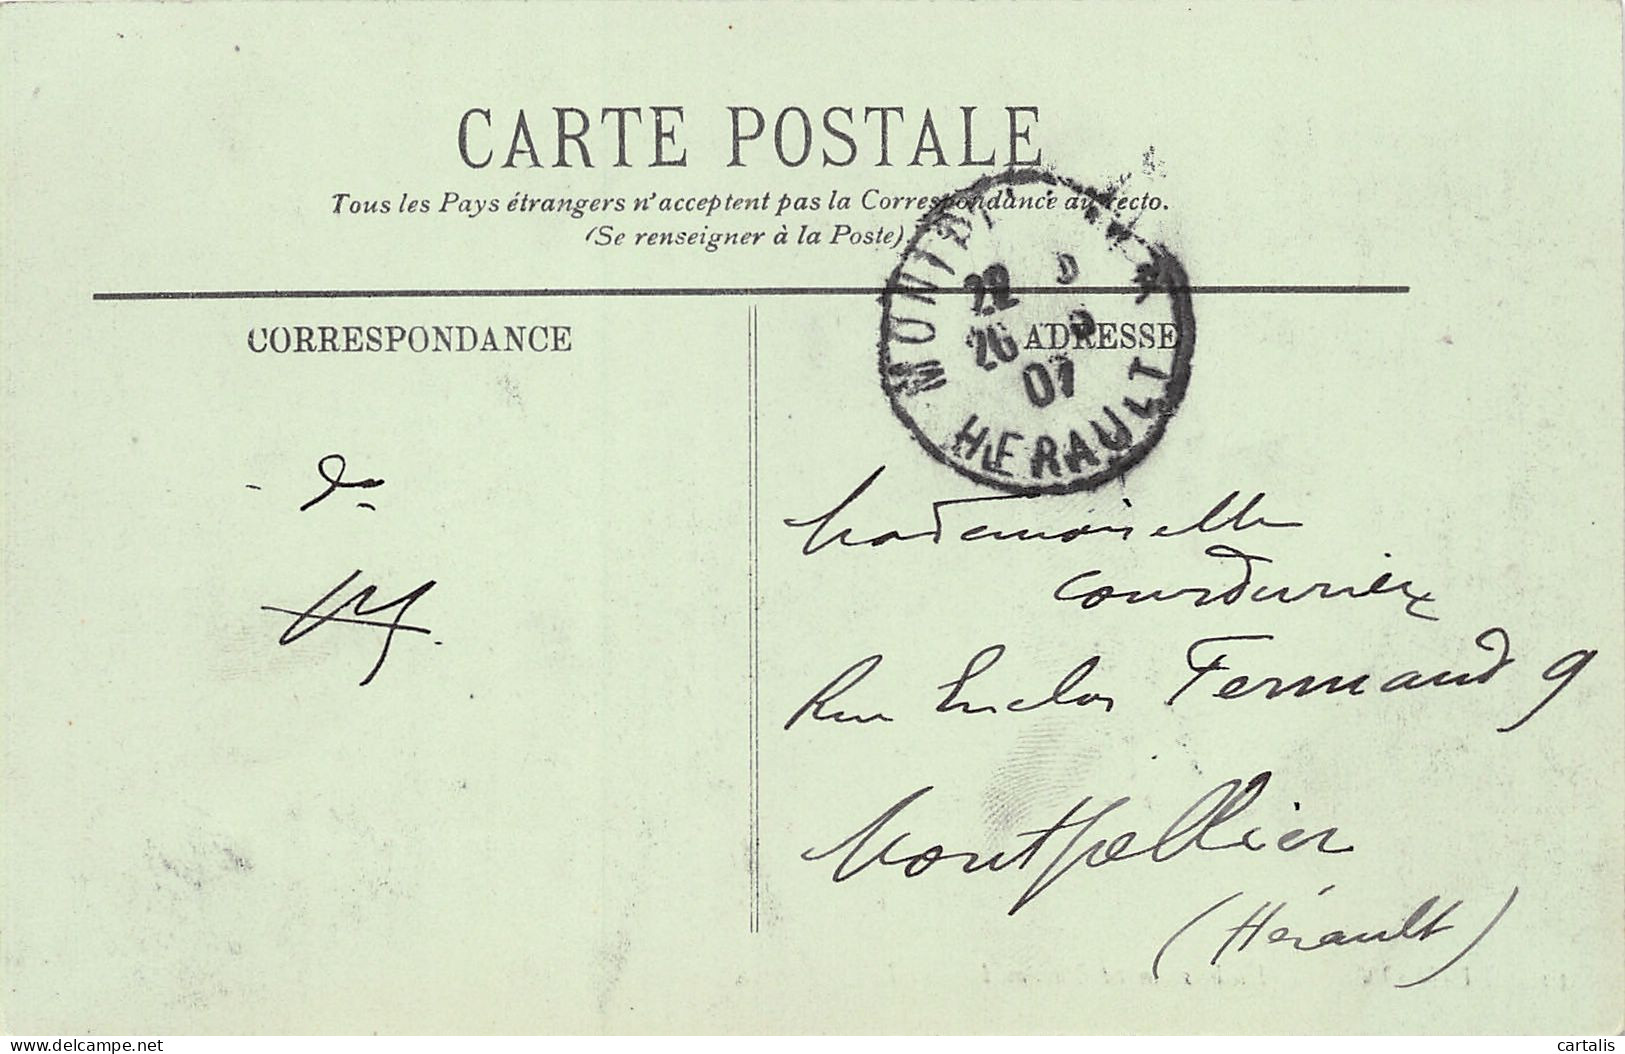 CARTE POSTALE
Tous les Pays étrangers n'acceptent pas la Correspondance au recto.
(Se renseigner à la Poste).
CORRESPONDANCE
ADRESSE
22
26
07
HERAULT
Mademoiselle
Courdurier
Rue Enclos Fermaud 9
Montpellier
(Hérault)
delcampe.net
cartalis